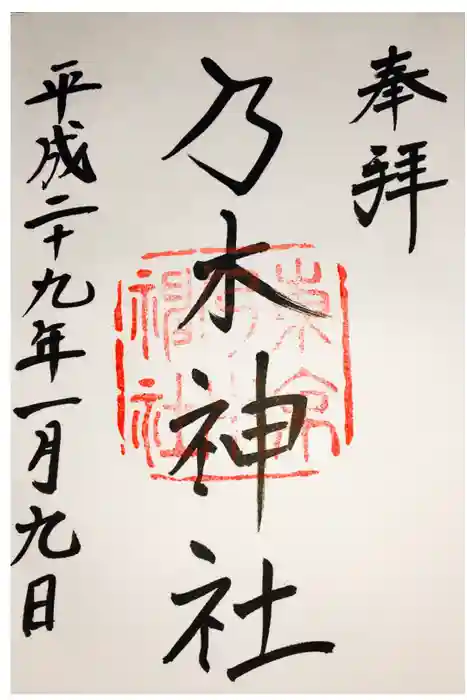 奉拝
乃木神社
平成二十九年一月九日